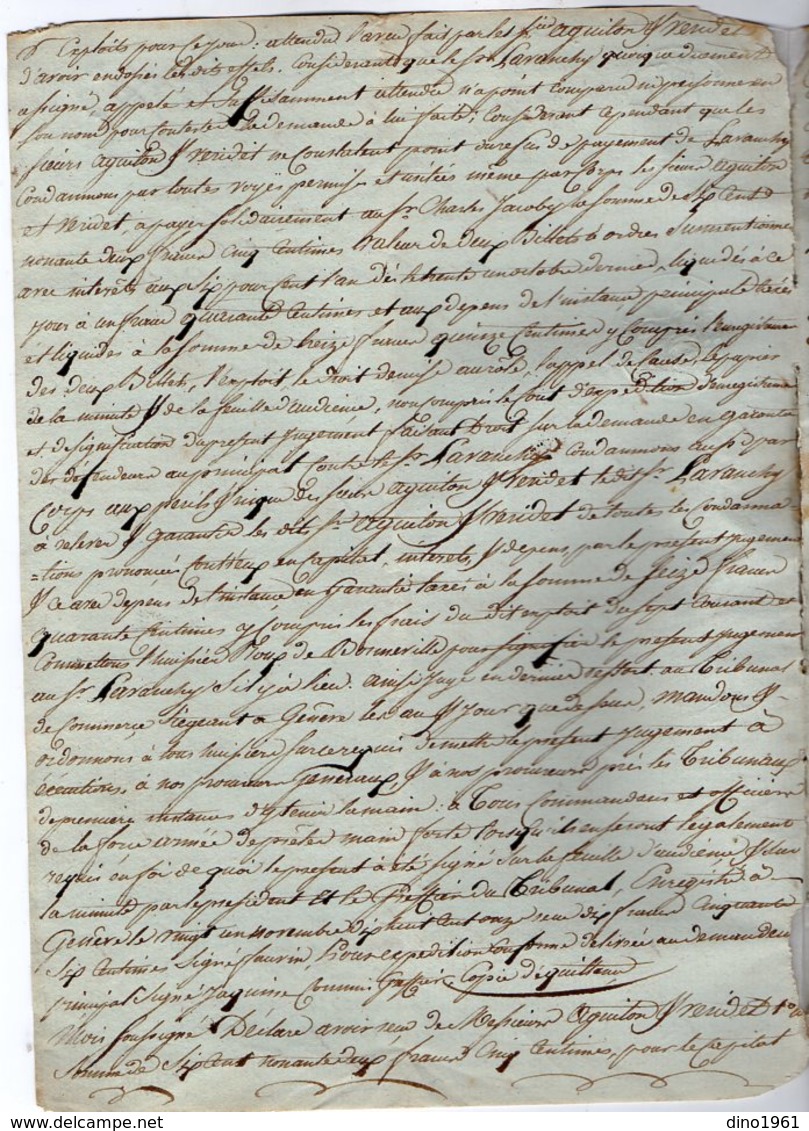 & Exploits pour ce jour : attendu l'aveu fait par les Srs aguiton & veridet
d'avoir endossés les dits effets. Considerant que le Sr Laranchy quoique dûment
assigné, appelé et suffisamment attendu n'a point comparu ni personne en
son nom pour contester la demande à lui faite ; Considerant cependant que les
sieurs aguiton & veridet ne constatent point du refus de payement de Laranchy
Condamnons par toutes voyes permises et usitées même par Corps les sieurs aguiton
et veridet, à payer solidairement au Sr Charles Jacoby la somme de six cent
nonante deux francs cinq Centimes valeur de deux Billets à ordres susmentionnés
avec interêts aux six pour cent l'an dès le trente un octobre dernier, liquidés à ce
jour à un franc quarante Centimes et aux depens de l'instance principale taxés
et liquidés à la somme de treize francs quinze Centimes y compris l'enregistrem
des deux Billets, l'exploit, le Droit de mise au rôle, l'appel de Cause, le papier
de la minute & de la feuille d'audience, non compris le cout d'expédition d'enregistrem
et de signification du present Jugement faisant Droit sur la demande en garantie
des défendeurs au principal contre le Sr Laranchy condamnons aussi par
Corps aux perils & risque des sieurs aguiton & veridet le dit Sr Laranchy
à relever & garantir les dits Srs aguiton & veridet de toutes les Condamna
=tions prononcées contr'eux en Capital, interets & depens, par le present Jugement
& ce avec depens de l'instance en Garantie taxés à la somme de seize francs
quarante Centimes y compris les frais du dit exploit du sept Courant et
Commettons l'huissier Roup de Bonneville pour signifier le present Jugement
au Sr Laranchy s'il y a lieu. ainsi Jugé en dernier ressort au Tribunal
de Commerce Siégeant à Genêve les an & jour que dessus, mandons &
ordonnons à tous huissiers sur ce requis de mettre le present Jugement à
éxécution, à nos procureurs Généraux & à nos procureurs près les Tribunaux
de premiere instances d'y tenir la main : à Tous Commandans et officiers
de la force armée de prêter main forte lorsqu'ils en seront légalement
requis en foi de quoi le present à été signé sur la feuille d'audience & sur
la minute par le president et le Greffier du Tribunal, Enregistré à
Genêve le vingt un novembre dix huit cent onze reçu dix francs cinquante
six Centimes signé Pour expedition conforme delivrée au demandeur
principal signé Commis Greffier, Copie de quittance
Mois soussigné Déclare avoir reçu de Messieurs Aguiton & veridet la
Somme de six cent nonante deux francs cinq Centimes, pour le Capital
dino1961